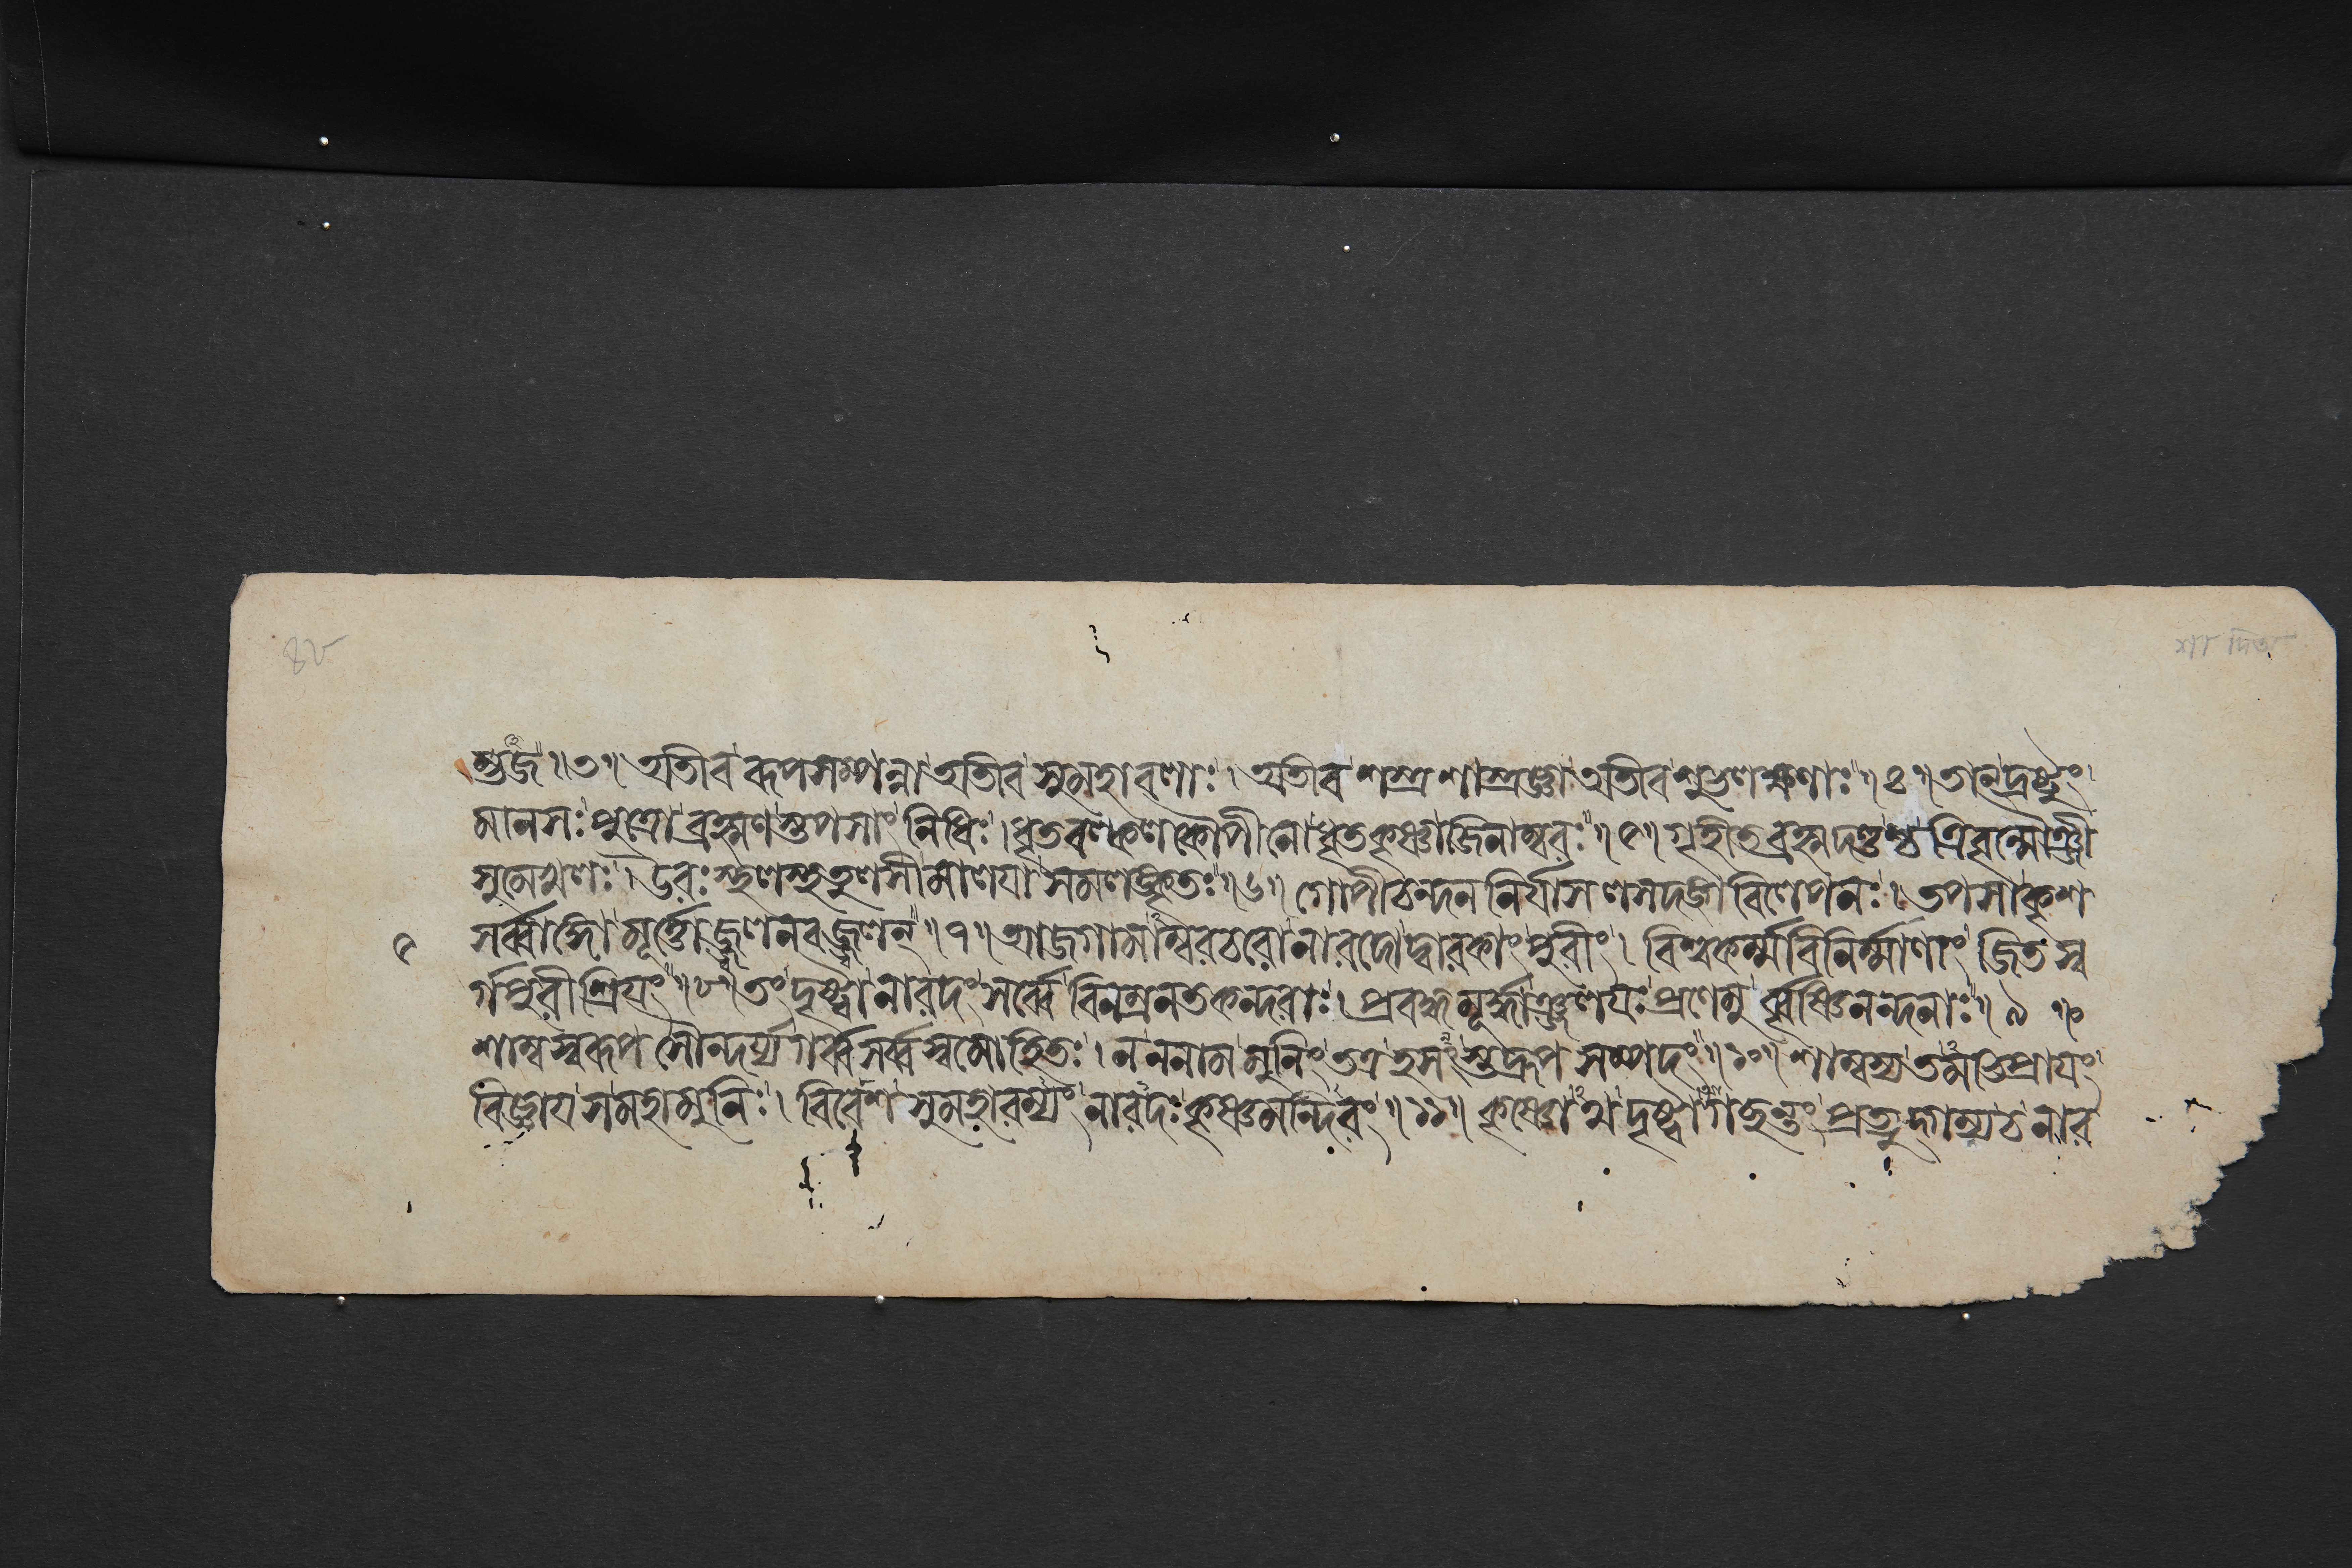 ৪৮ শা দিত্য
ত্তজ॥৩॥ অতিব ৰূপসম্পন্না অতিব সুমহাবলাঃ। অতিব শস্ত্রশাস্ত্রজ্ঞা অতিব শুভলক্ষণাঃ॥৪॥ তান্দ্রষ্টুং
মানসঃ পুত্রো ব্রহ্মণস্তপসাং নিধিঃ। ধৃতবল্কলকৌপীনো ধৃতকৃষ্ণাজিনাম্বরঃ॥৫॥ গৃহীতব্রহ্মদণ্ডশ্চ ত্রিবৃন্মৌঞ্জী
সুমেখলঃ। উরঃস্থলস্থতুলসীমালয়া সমলঙ্কৃতঃ॥৬॥ গোপীচন্দননির্যাসলসদঙ্গবিলেপনঃ। তপসা কৃশ
৫ সর্ব্বাঙ্গো মূর্ত্তো জ্বলনবজ্জ্বলন্॥৭॥ আজগামাম্বরচরো নারদো দ্বারকাং পুরীং। বিশ্বকর্ম্মবিনির্ম্মাণাং জিতস্ব
র্গপুরীশ্রিয়ং॥৮॥ তং দৃষ্ট্বা নারদং সর্ব্বে বিনম্রনতকন্দরাঃ। প্রবদ্ধমূর্দ্ধাঞ্জলয়ঃ প্রণেমু র্বৃষ্ণিনন্দনাঃ॥৯॥
শাম্ব স্বৰূপ সৌন্দর্য্যগর্ব্বসর্ব্বস্বমোহিতঃ। ন ননাম মুনিং তত্র হসংস্তদ্রূপসম্পদং॥১০॥ শাম্বস্য তমভিপ্রায়ং
বিজ্ঞায় স মহামুনিঃ। বিবেশ সুমহারম্যং নারদঃ কৃষ্ণমন্দিরং॥১১॥ কৃষ্ণোথ দৃষ্ট্বাগছন্তং প্রত্যুদ্গম্য চ নার